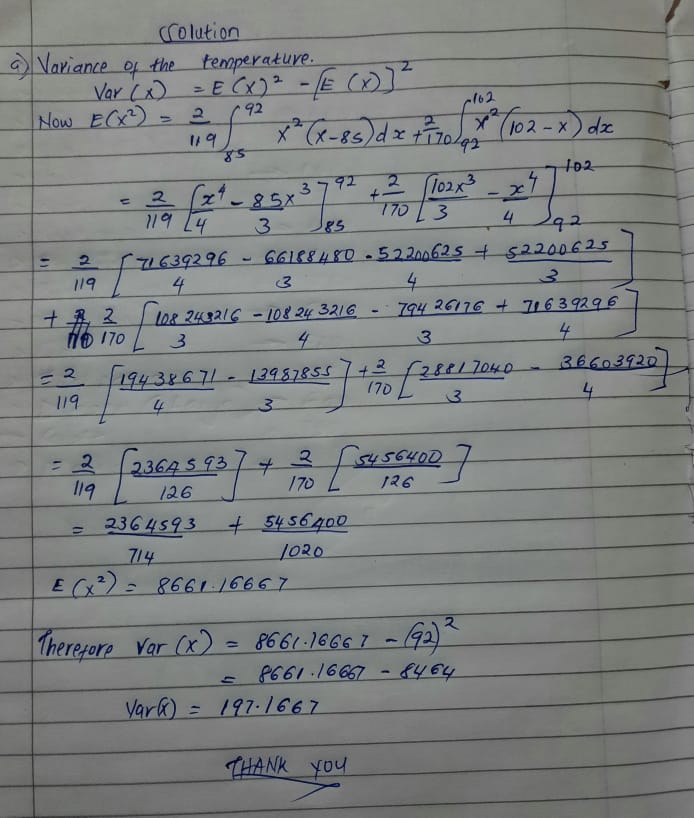 Solution
a) Variance of the temperature.
Var (x) = E (x)² - [E (x)]²
Now E(x²) = 2/119 ∫₈₅⁹² x² (x-85) dx + 2/170 ∫₉₂¹⁰² x² (102 - x) dx
= 2/119 [x⁴/4 - 85x³/3]₈₅⁹² + 2/170 [102x³/3 - x⁴/4]₉₂¹⁰²
= 2/119 [71639296/4 - 66188480/3 - 52200625/4 + 52200625/3]
+ 2/170 [108243216/3 - 108243216/4 - 79426176/3 + 71639296/4]
= 2/119 [19438671/4 - 13987855/3] + 2/170 [28817040/3 - 36603920/4]
= 2/119 [2364593/126] + 2/170 [5456400/126]
= 2364593/714 + 5456400/1020
E (x²) = 8661.16667
Therefore Var (x) = 8661.16667 - (92)²
= 8661.16667 - 8464
Var(x) = 197.1667
THANK YOU